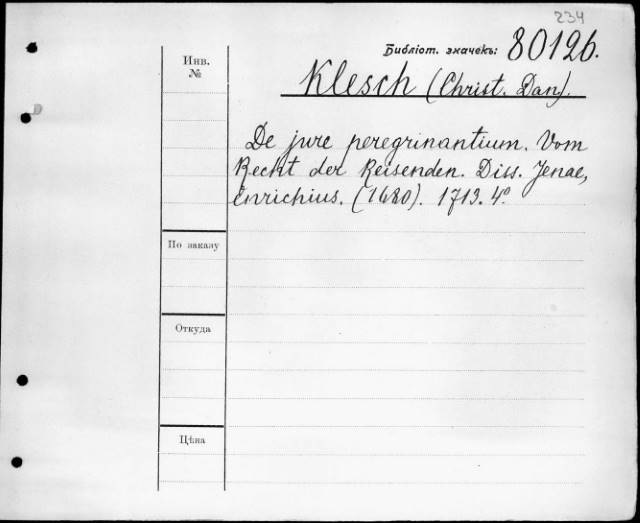 234
Библіот. значекъ: 80126.
Инв.
№
Klesch (Christ. Dan).
De jure peregrinantium. Vom
Recht der Reisenden. Diss. Jenae,
Enrichius. (1680). 1713. 4°
По заказу
Откуда
Цѣна